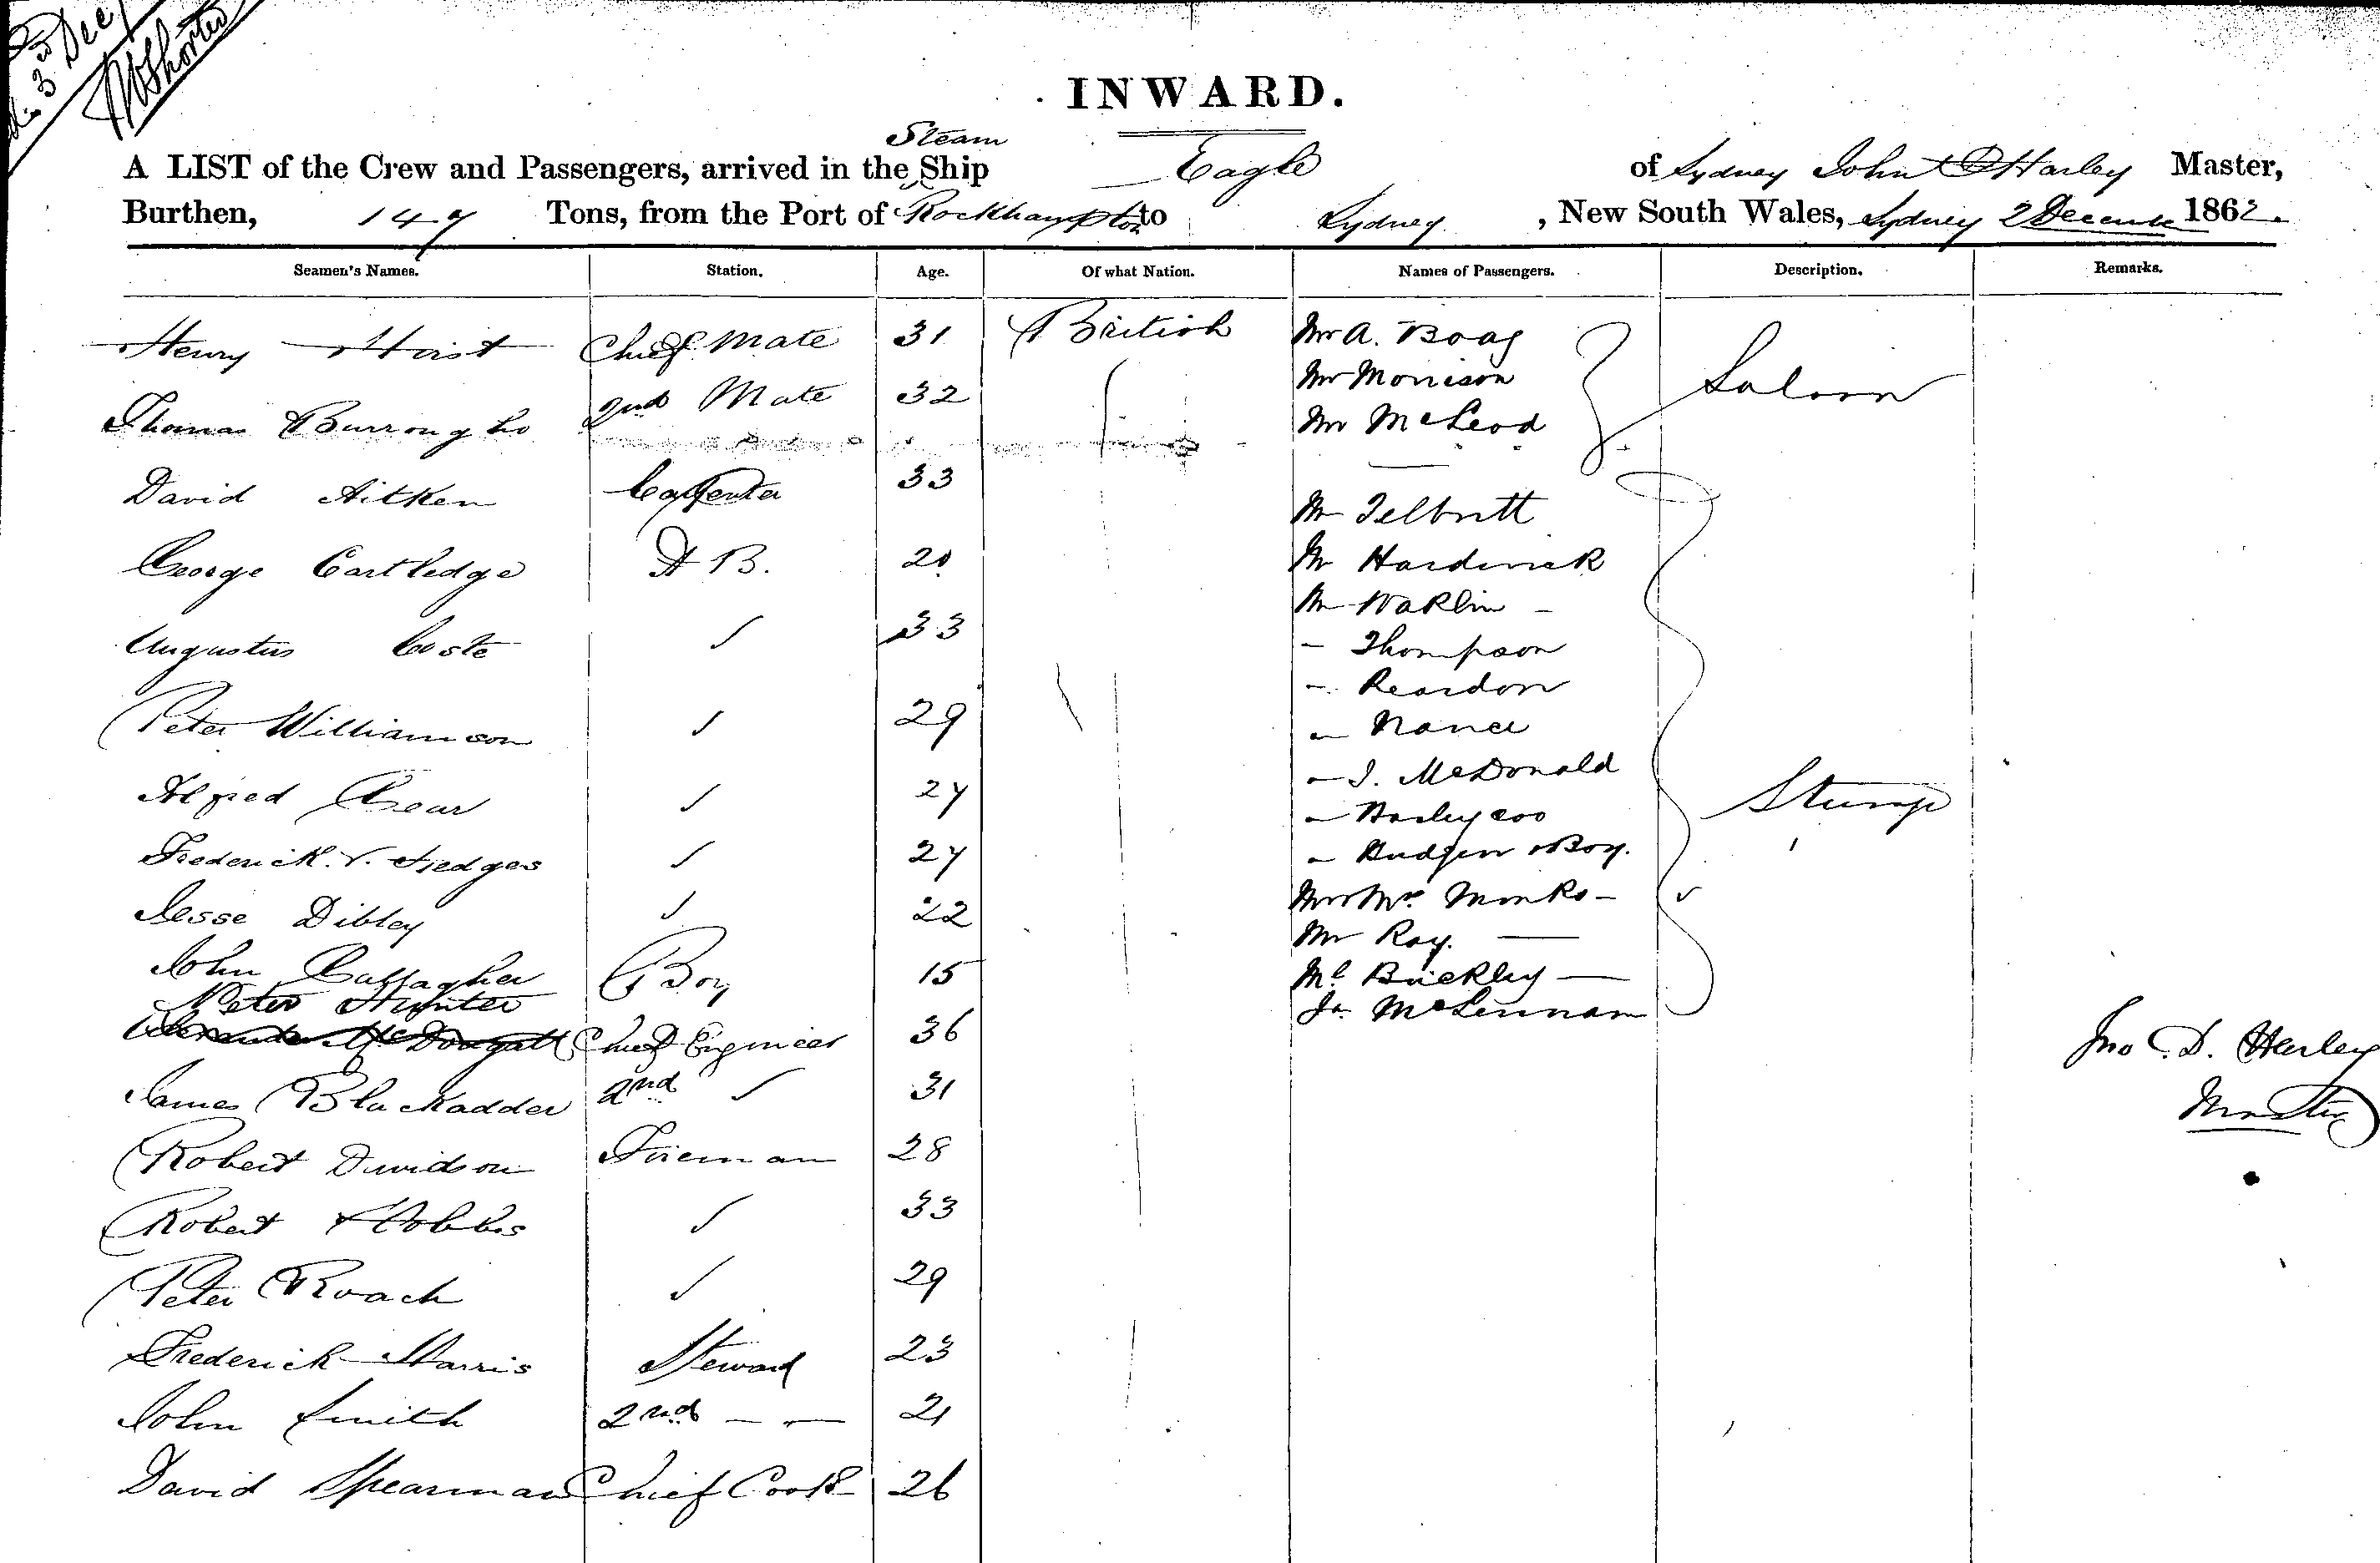 3rd Dec
INWARD.
Steam
A LIST of the Crew and Passengers, arrived in the Ship Eagle of Sydney John D Harley Master,
Burthen, 147 Tons, from the Port of Rockhampton to Sydney, New South Wales, Sydney 2 December 1862.
Seamen's Names. Station. Age. Of what Nation. Names of Passengers. Description. Remarks.
Henry Hoist Chief Mate 31 British Mr A. Boag
Mr Morrison Saloon
Thomas Burroughs 2nd Mate 32 Mr McLeod
David Aitken Carpenter 33 Mr
George Cartledge A B. 20 Mr Hardwick
Mr Waklin -
Augustus Coste ✓ 33 - Thompson
- Reardon
Peter Williamson ✓ 29 - Nance
Alfred Gear ✓ 24 - J. McDonald
- Stump
Frederick. V. Hedges ✓ 24 - & Boy.
Jesse Dibley ✓ 22 Mr & Mrs Monks -
John Gallagher Boy 15 Mr Ray. —
Peter Hunter Mr Buckley —
Alexander McDougall Chief Engineer 36 Js. McLennan
Jno. D. Harley
James Blackadder 2nd ✓ 31 Master
Robert Davidson Fireman 28
Robert Hobbs ✓ 33
Peter Roach ✓ 29
Frederick Harris Steward 23
John Smith 2nd - - 21
David Spearman Chief Cook 26